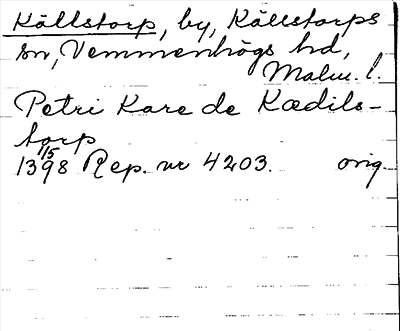 Källstorp, by, Källstorps
sn, Vemmenhögs hd,
Malm. l.
Petri Kare de Kædils-
torp
1398 15/ Rep. nr 4203. orig.